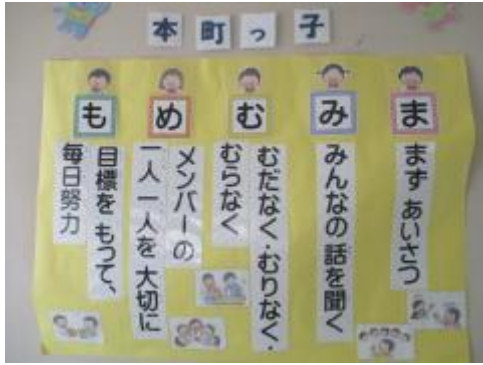 本町っ子
ま
まず あいさつ
み
みんなの 話を聞く
む
むだなく・むりなく・
むらなく
め
メンバーの
一人一人を 大切に
も
目標を もって、
毎日努力